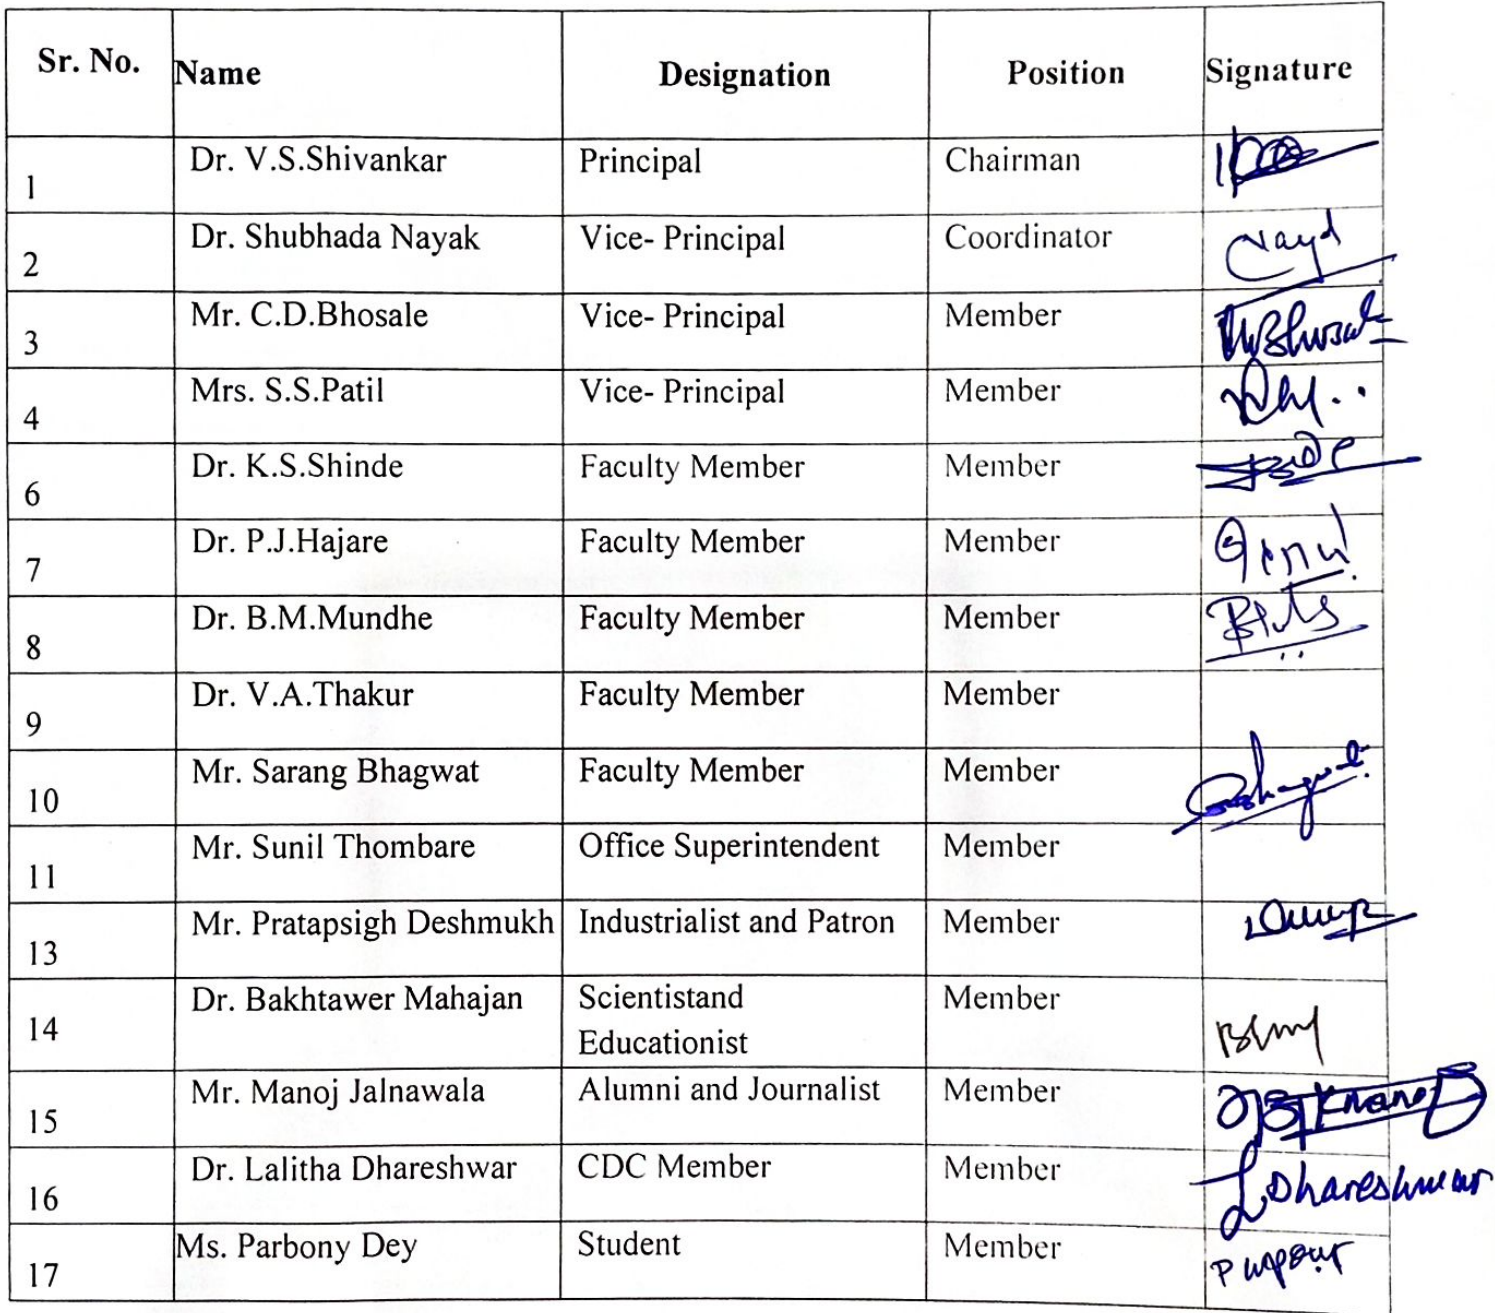 Sr. No. Name Designation Position Signature
1 Dr. V.S.Shivankar Principal Chairman
2 Dr. Shubhada Nayak Vice- Principal Coordinator
3 Mr. C.D.Bhosale Vice- Principal Member
4 Mrs. S.S.Patil Vice- Principal Member
6 Dr. K.S.Shinde Faculty Member Member
7 Dr. P.J.Hajare Faculty Member Member
8 Dr. B.M.Mundhe Faculty Member Member
9 Dr. V.A.Thakur Faculty Member Member
10 Mr. Sarang Bhagwat Faculty Member Member
11 Mr. Sunil Thombare Office Superintendent Member
13 Mr. Pratapsigh Deshmukh Industrialist and Patron Member
14 Dr. Bakhtawer Mahajan Scientistand Member
Educationist
15 Mr. Manoj Jalnawala Alumni and Journalist Member
16 Dr. Lalitha Dhareshwar CDC Member Member LDhareshwar
17 Ms. Parbony Dey Student Member